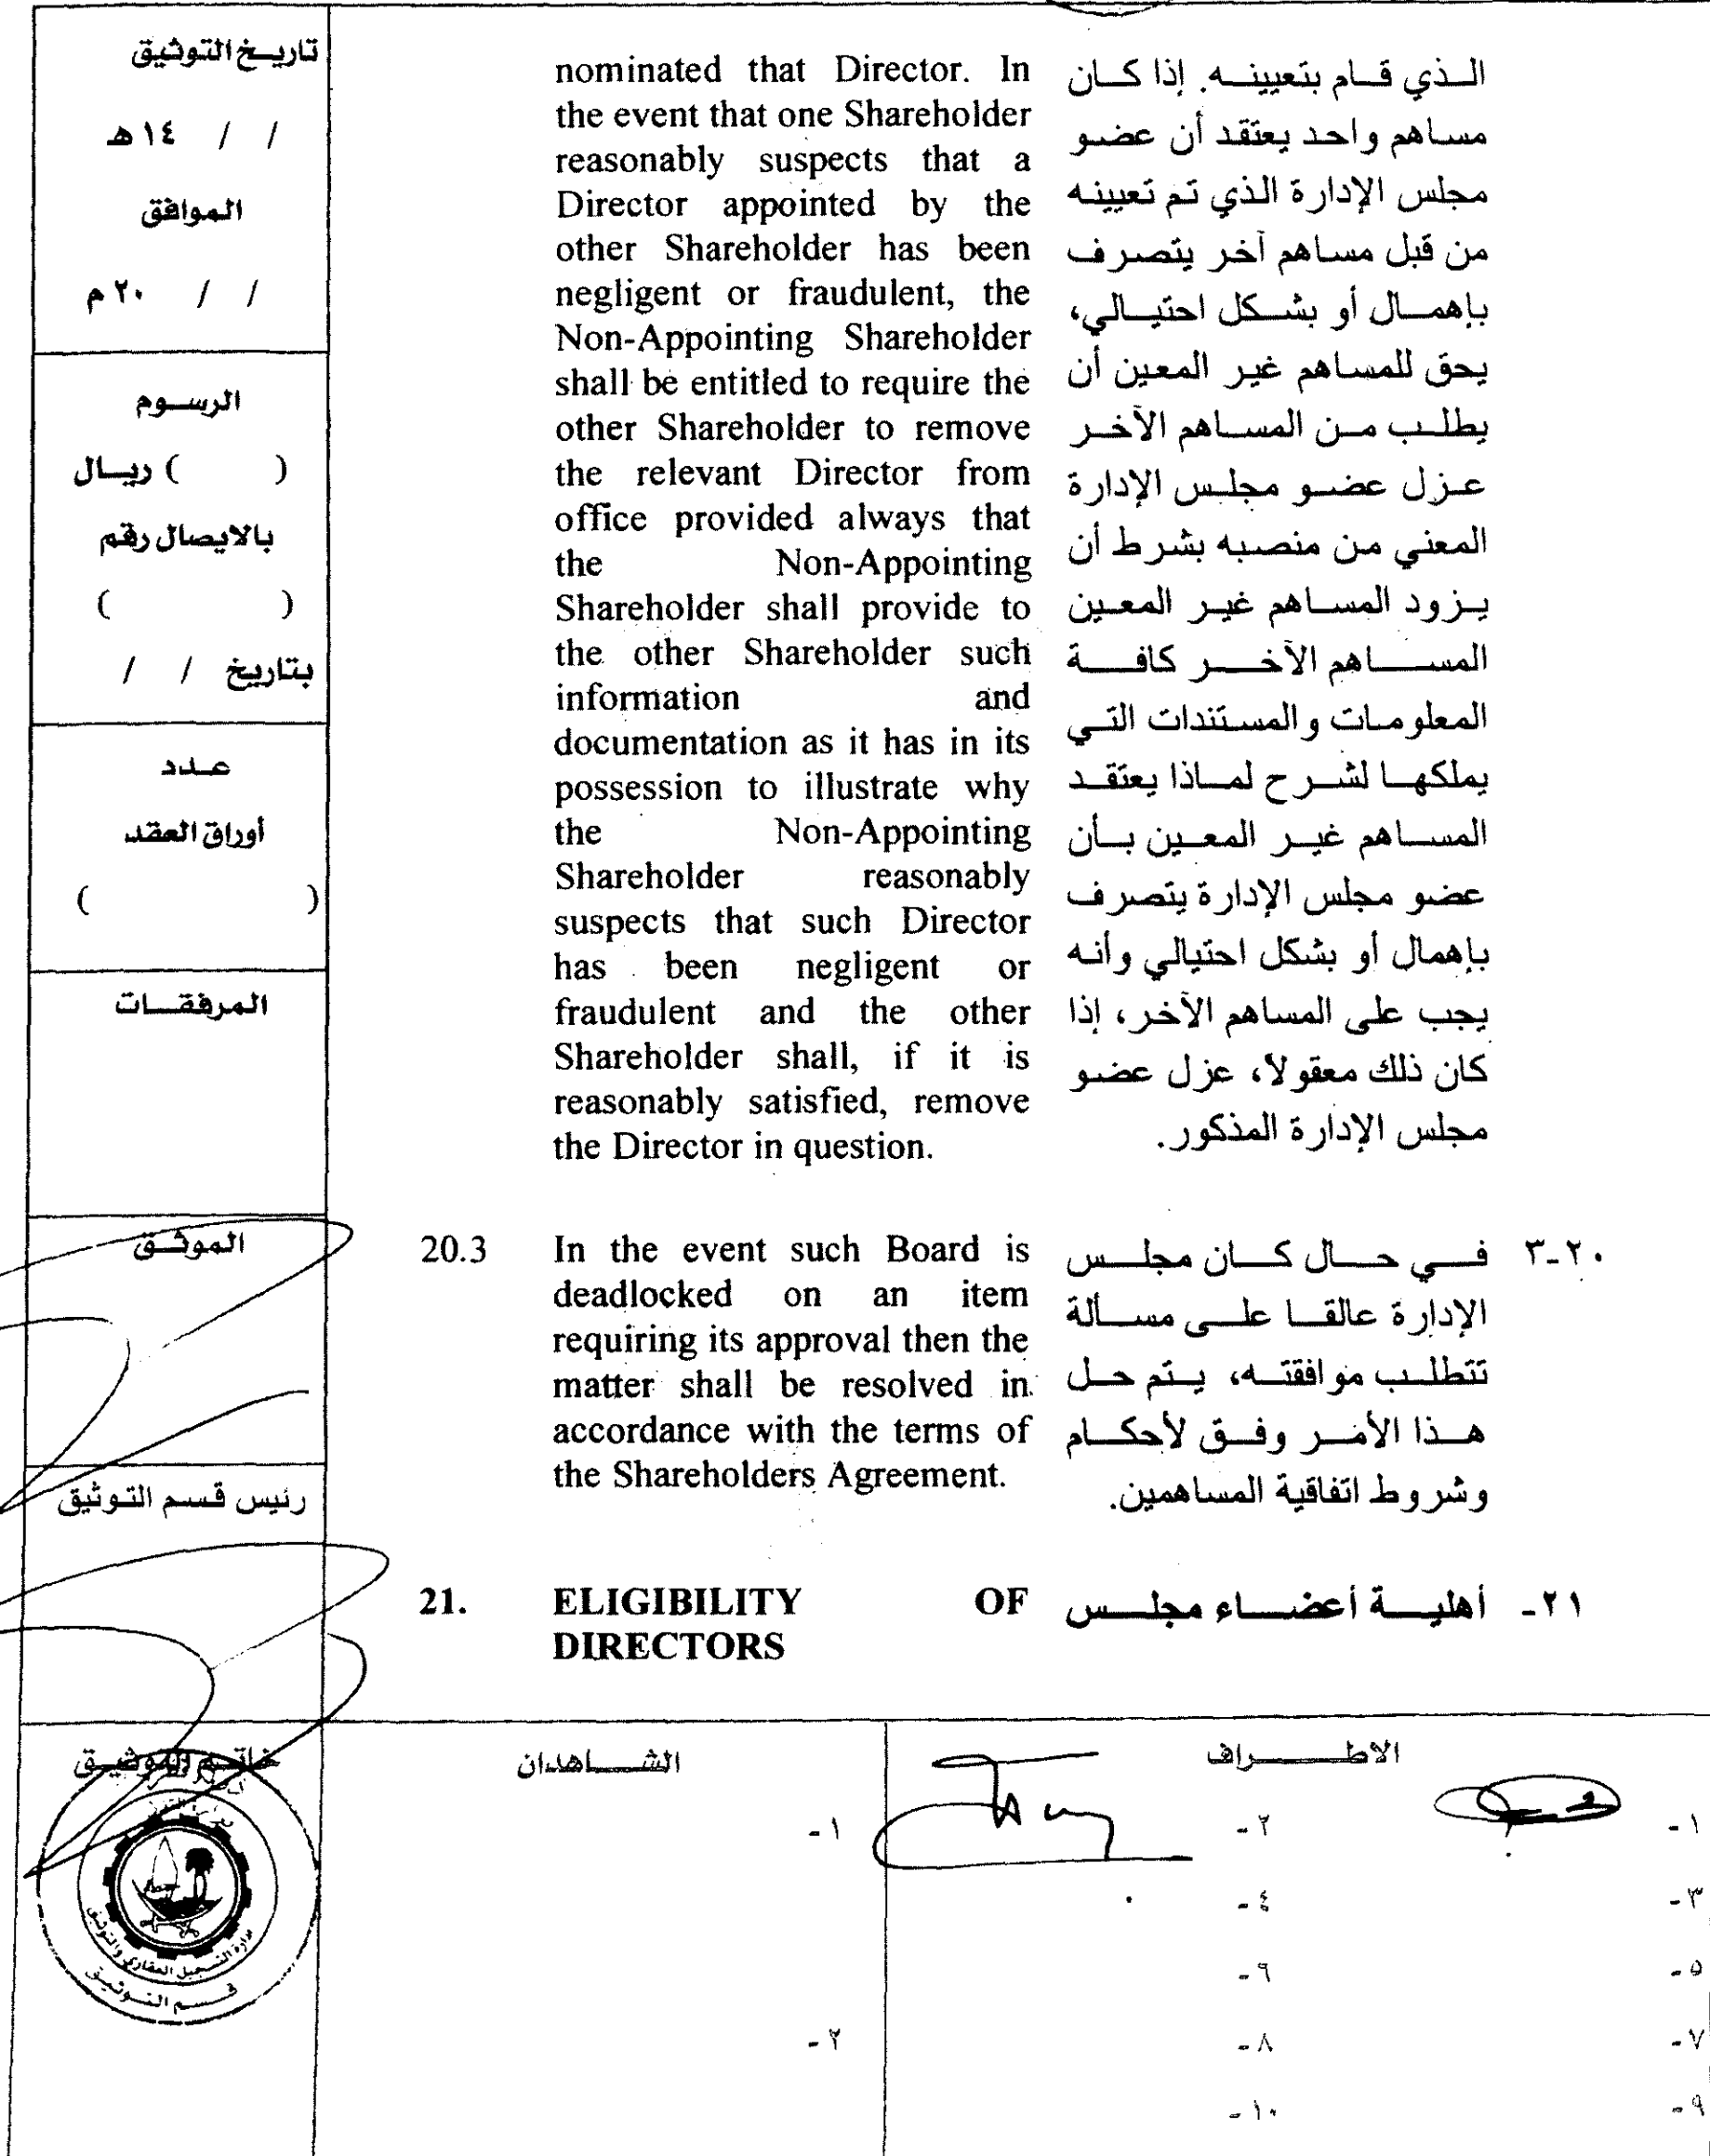 تاريخ التوثيق
/ / ١٤هـ
الموافق
/ / ٢٠م
الرسوم
( ) ريال
بالايصال رقم
( )
بتاريخ / /
عدد
أوراق العقد
( )
المرفقات
الموثق
رئيس قسم التوثيق
nominated that Director. In
the event that one Shareholder
reasonably suspects that a
Director appointed by the
other Shareholder has been
negligent or fraudulent, the
Non-Appointing Shareholder
shall be entitled to require the
other Shareholder to remove
the relevant Director from
office provided always that
the Non-Appointing
Shareholder shall provide to
the other Shareholder such
information and
documentation as it has in its
possession to illustrate why
the Non-Appointing
Shareholder reasonably
suspects that such Director
has been negligent or
fraudulent and the other
Shareholder shall, if it is
reasonably satisfied, remove
the Director in question.
20.3 In the event such Board is
deadlocked on an item
requiring its approval then the
matter shall be resolved in
accordance with the terms of
the Shareholders Agreement.
21. ELIGIBILITY OF
DIRECTORS
الذي قام بتعيينه. إذا كان
مساهم واحد يعتقد أن عضو
مجلس الإدارة الذي تم تعيينه
من قبل مساهم آخر يتصرف
بإهمال أو بشكل احتيالي،
يحق للمساهم غير المعين أن
يطلب من المساهم الآخر
عزل عضو مجلس الإدارة
المعني من منصبه بشرط أن
يزود المساهم غير المعين
المساهم الآخر كافة
المعلومات والمستندات التي
يملكها لشرح لماذا يعتقد
المساهم غير المعين بأن
عضو مجلس الإدارة يتصرف
بإهمال أو بشكل احتيالي وأنه
يجب على المساهم الآخر، إذا
كان ذلك معقولا، عزل عضو
مجلس الإدارة المذكور.
٢٠-٣ في حال كان مجلس
الإدارة عالقا على مسألة
تتطلب موافقته، يتم حل
هذا الأمر وفق لأحكام
وشروط اتفاقية المساهمين.
٢١- أهلية أعضاء مجلس
الاطراف
١-
٢-
٣-
٤-
٥-
٦-
٧-
٨-
٩-
١٠-
الشاهدان
١-
٢-
خاتم التوثيق
إدارة التسجيل العقاري والتوثيق
قسم التوثيق